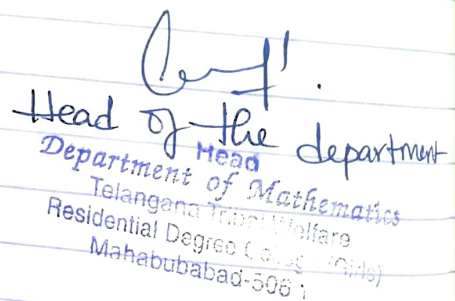 Head of the department
Head
Department of Mathematics
Telangana Tribal Welfare
Residential Degree College (Girls)
Mahabubabad-506